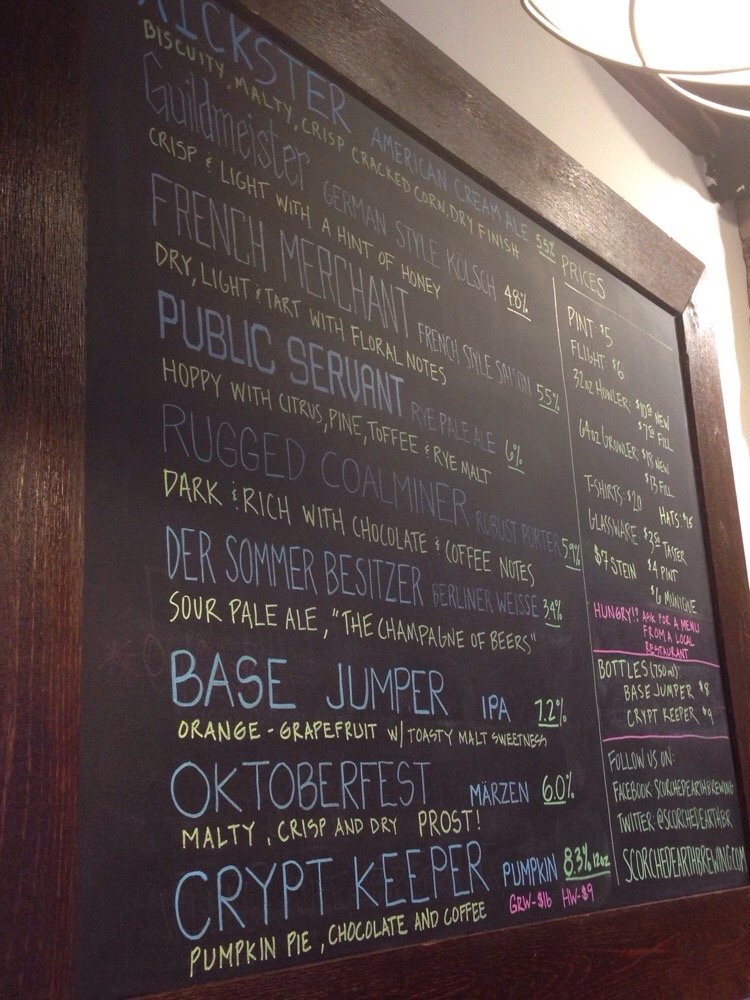 HICKSTER AMERICAN CREAM ALE 5.5%
BISCUITY, MALTY, CRISP CRACKED CORN, DRY FINISH
Guildmeister GERMAN STYLE KÖLSCH 4.8%
CRISP & LIGHT WITH A HINT OF HONEY
FRENCH MERCHANT FRENCH STYLE SAISON 5.5%
DRY, LIGHT & TART WITH FLORAL NOTES
PUBLIC SERVANT RYE PALE ALE 6%
HOPPY WITH CITRUS, PINE, TOFFEE & RYE MALT
RUGGED COALMINER ROBUST PORTER 5.9%
DARK & RICH WITH CHOCOLATE & COFFEE NOTES
DER SOMMER BESITZER BERLINER WEISSE 3.4%
SOUR PALE ALE, "THE CHAMPAGNE OF BEERS"
BASE JUMPER IPA 7.2%
ORANGE - GRAPEFRUIT W/ TOASTY MALT SWEETNESS
OKTOBERFEST MÄRZEN 6.0%
MALTY, CRISP AND DRY PROST!
CRYPT KEEPER PUMPKIN 8.3% 12oz
GRW-$16 HW-$9
PUMPKIN PIE, CHOCOLATE AND COFFEE
PRICES
PINT $5
FLIGHT $6
32oz HOWLER: NEW
FILL
64oz GROWLER: $18 NEW
$13 FILL
T-SHIRTS: $20 HATS
GLASSWARE TASTER
$7 STEIN $4 PINT
$6 MUNIQUE
HUNGRY!? ASK FOR A MENU
FROM A LOCAL
RESTAURANT
BOTTLES (750ml)
BASE JUMPER $8
CRYPT KEEPER $9
FOLLOW US ON:
FACEBOOK: SCORCHEDEARTHBREWING
TWITTER @SCORCHEDEARTHBR
SCORCHEDEARTHBREWING.COM